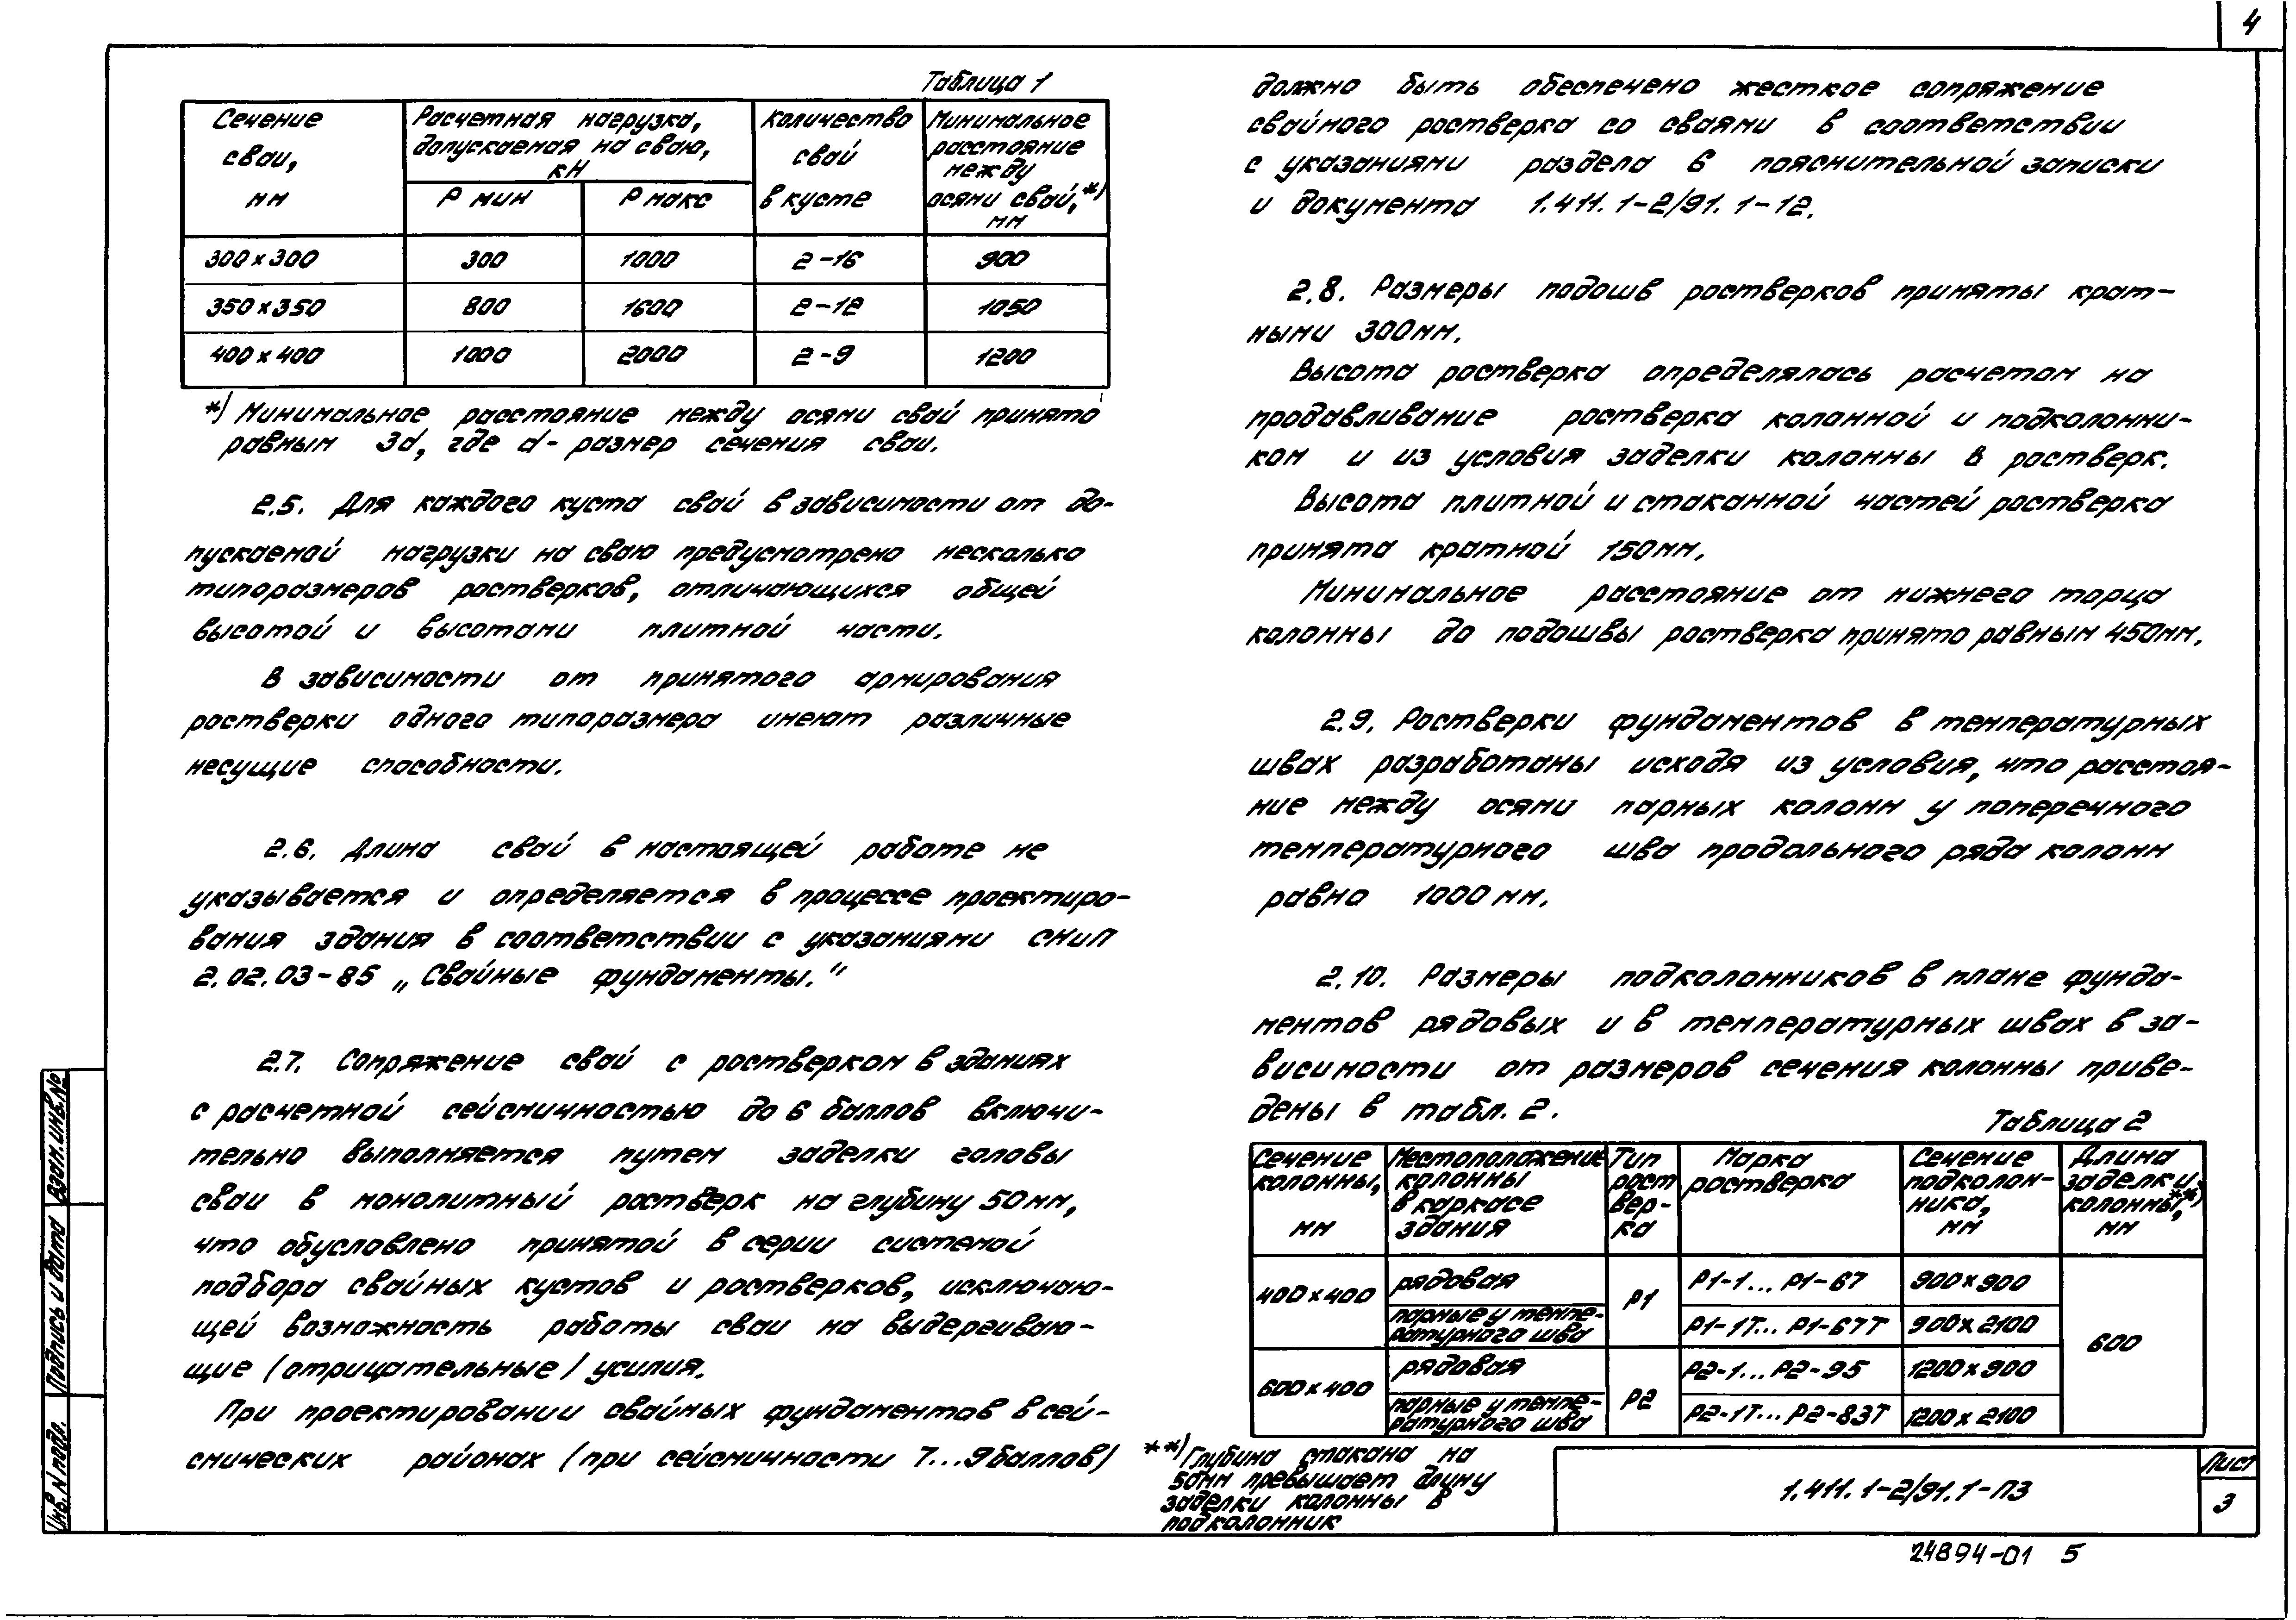 4
Таблица 1
Сечение сваи, мм | Расчетная нагрузка, допускаемая на сваю, кН | Количество свай в кусте | Минимальное расстояние между осями свай,*) мм
Р мин | Р макс
300 х 300 | 300 | 1000 | 2-16 | 900
350 х 350 | 800 | 1600 | 2-12 | 1050
400 х 400 | 1000 | 2000 | 2-9 | 1200
*) Минимальное расстояние между осями свай принято
равным 3d, где d- размер сечения сваи.
2.5. Для каждого куста свай в зависимости от до-
пускаемой нагрузки на сваю предусмотрено несколько
типоразмеров ростверков, отличающихся общей
высотой и высотами плитной части.
В зависимости от принятого армирования
ростверки одного типоразмера имеют различные
несущие способности.
2.6. Длина свай в настоящей работе не
указывается и определяется в процессе проектиро-
вания здания в соответствии с указаниями СНиП
2.02.03-85 „Свайные фундаменты."
2.7. Сопряжение свай с ростверком в зданиях
с расчетной сейсмичностью до 6 баллов включи-
тельно выполняется путем заделки головы
сваи в монолитный ростверк на глубину 50мм,
что обусловлено принятой в серии системой
подбора свайных кустов и ростверков, исключаю-
щей возможность работы сваи на выдергиваю-
щие (отрицательные) усилия.
При проектировании свайных фундаментов в сей-
смических районах (при сейсмичности 7...9 баллов)
должно быть обеспечено жесткое сопряжение
свайного ростверка со сваями в соответствии
с указаниями раздела 6 пояснительной записки
и документа 1.411.1-2/91.1-12.
2.8. Размеры подошв ростверков приняты крат-
ными 300мм.
Высота ростверка определялась расчетом на
продавливание ростверка колонной и подколонни-
ком и из условия заделки колонны в ростверк.
Высота плитной и стаканной частей ростверка
принята кратной 150мм.
Минимальное расстояние от нижнего торца
колонны до подошвы ростверка принято равным 450мм.
2.9. Ростверки фундаментов в температурных
швах разработаны исходя из условия, что расстоя-
ние между осями парных колонн у поперечного
температурного шва продольного ряда колонн
равно 1000 мм.
2.10. Размеры подколонников в плане фунда-
ментов рядовых и в температурных швах в за-
висимости от размеров сечения колонны приве-
дены в табл. 2.
Таблица 2
Сечение колонны, мм | Местоположение колонны в каркасе здания | Тип рост вер- ка | Марка ростверка | Сечение подколон- ника, мм | Длина заделки колонны,**) мм
400 х 400 | рядовая | Р1 | Р1-1... Р1-67 | 900 х 900 | 600
парные у темпе- ратурного шва | Р1-1Т... Р1-67Т | 900 х 2100
600 х 400 | рядовая | Р2 | Р2-1... Р2-95 | 1200 х 900
парные у темпе- ратурного шва | Р2-1Т... Р2-83Т | 1200 х 2100
**) Глубина стакана на
50мм превышает длину
заделки колонны в
подколонник
1.411.1-2/91.1-ПЗ
Лист
3
24894-01 5
Взам. инв. №
Подпись и дата
Инв. N подл.